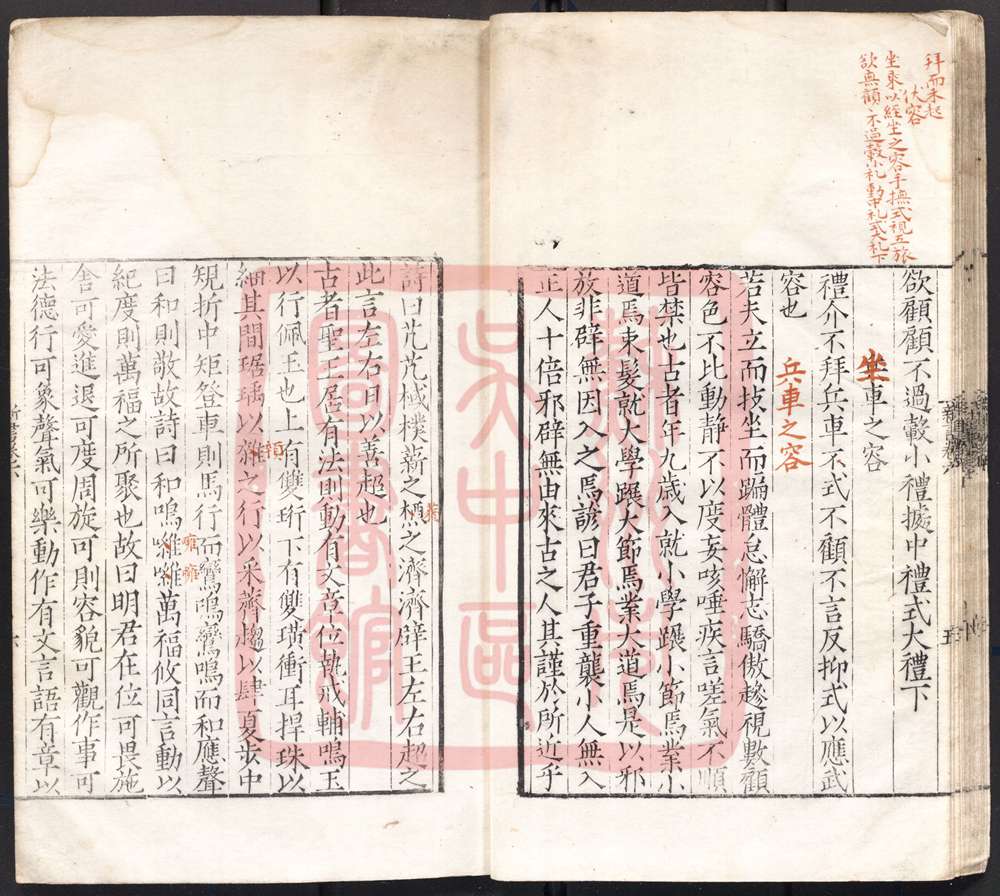 拜而未起
伏容
坐乘以經坐之容手撫式視五旅
欲無顧不過轂小礼動中礼式大礼下
欲顧顧不過轂小禮據中禮式大禮下
坐車之容
禮介不拜兵車不式不顧不言反抑式以應武
容也
兵車之容
若夫立而技坐而蹁體怠懈志驕傲趮視數顧
容色不比動靜不以度妄咳唾疾言嗟氣不順
皆禁也古者年九歲入就小學蹍小節焉業小
道焉束髮就大學蹍大節焉業大道焉是以邪
放非辟無因入之焉諺曰君子重襲小人無入
正人十倍邪辟無由來古之人其謹於所近乎
詩曰芃芃棫樸薪之槱之濟濟辟王左右趨之
此言左右日以善趨也
古者聖王居有法則動有文章位執戒輔鳴玉
以行佩玉也上有雙珩下有雙璜衝耳捍珠以
納其間琚瑀以雜之行以采薺趨以肆夏步中
規折中矩登車則馬行而鸞鳴鸞鳴而和應聲
曰和則敬故詩曰和鳴噰噰萬福攸同言動以
雍雍
紀度則萬福之所聚也故曰明君在位可畏施
舍可愛進退可度周旋可則容貌可觀作事可
法德行可象聲氣可樂動作有文言語有章以
蘇州市
吳中區
圖書館